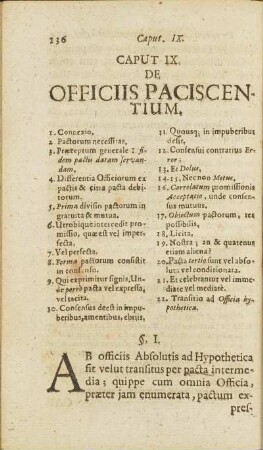 136 Caput. IX.
CAPUT IX.
DE
OFFICIIS PACISCEN-
TIUM.
1. Connexio,
2 Pactorum necessitas,
3. Præceptum generale: fi-
dem pactis datam servan-
dam,
4. Differentia Officiorum ex
pactis & citra pacta debi-
torum.
5. Prima divisio pactorum in
gratuita & mutua.
6. Utrobique intercedit pro-
missio, quæ est vel imper-
fecta.
7. Vel perfecta.
8. Forma pactorum consistit
in consensu.
9. Qui exprimitur signis, Un-
de porrò pacta vel expressa,
vel tacita.
10. Consensus deest in impu-
beribus, amentibus, ebriis,
11. Quousq; in impuberibus
desit,
12. Consensui contrarius Er-
ror;
13. Et Dolus,
14-15. Necnon Metus,
16. Correlatum promissionis
Acceptatio, unde consen-
sus mutuus.
17. Objectum pactorum, res
possibilis,
18. Licita,
19. Nostra; an & quatenus
etiam aliena?
20. Pacta tertiò sunt vel abso-
luta vel conditionata.
21. Et celebrantur vel imme-
diatè vel mediatè.
22. Transitio ad Officia hy-
pothetica.
§. I.
AB officiis Absolutis ad Hypothetica
sit velut transitus per pacta interme-
dia; quippe cum omnia Officia,
præter jam enumerata, pactum ex-
pres-